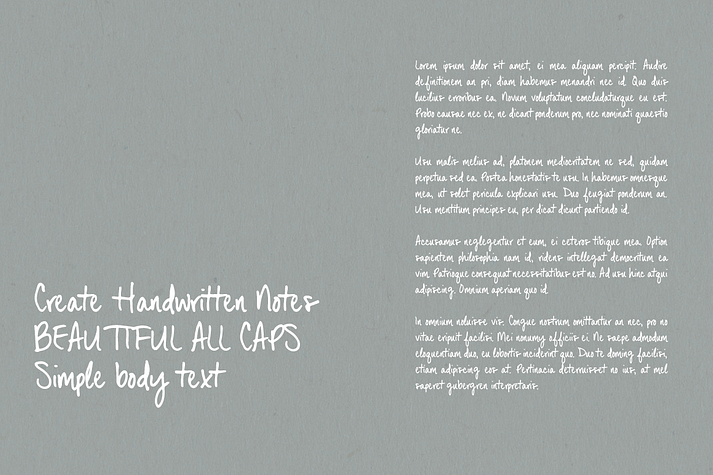 Create Handwritten Notes
BEAUTIFUL ALL CAPS
Simple body text
Lorem ipsum dolor sit amet, ei mea aliquam percipit. Audire
definitionem an pri, diam habemus menandri nec id. Quo duis
lucilius erroribus ea. Novum voluptatum concludaturque eu est.
Probo causae nec ex, ne dicant ponderum pro, nec nominati quaestio
gloriatur ne.
Usu malis melius ad, platonem mediocritatem ne sed, quidam
perpetua sed ea. Postea honestatis te usu. In habemus omnesque
mea, ut solet pericula explicari usu. Duo feugiat ponderum an.
Usu mentitum principes eu, per dicat dicunt partiendo id.
Accusamus neglegentur et eum, ei ceteros tibique mea. Option
sapientem philosophia nam id, ridens intellegat democritum ea
vim. Patrioque consequat necessitatibus est no. Ad usu hinc atqui
adipiscing. Omnium aperiam quo id.
In omnium noluisse vis. Congue nostrum omittantur an nec, pro no
vitae eripuit facilis. Mei nonumy officiis ei. Ne saepe admodum
eloquentiam duo, eu lobortis inciderint quo. Duo te doming facilisi,
etiam adipiscing eos at. Pertinacia deterruisset no ius, at mel
saperet gubergren interpretaris.